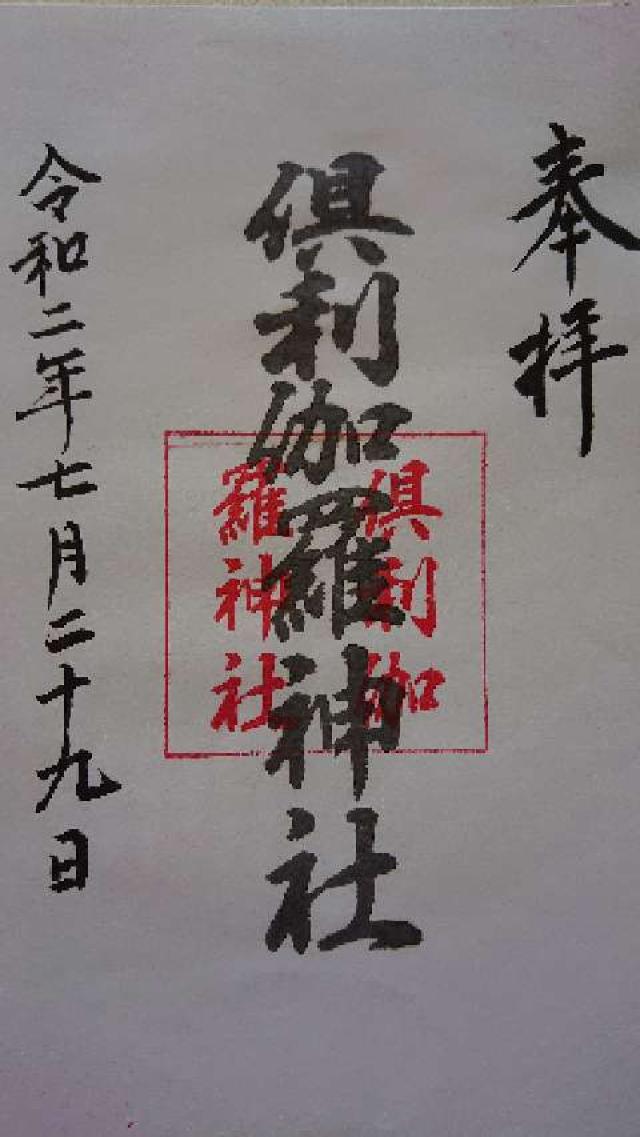 奉拝
倶利伽羅神社
倶利伽
羅神社
令和二年七月二十九日